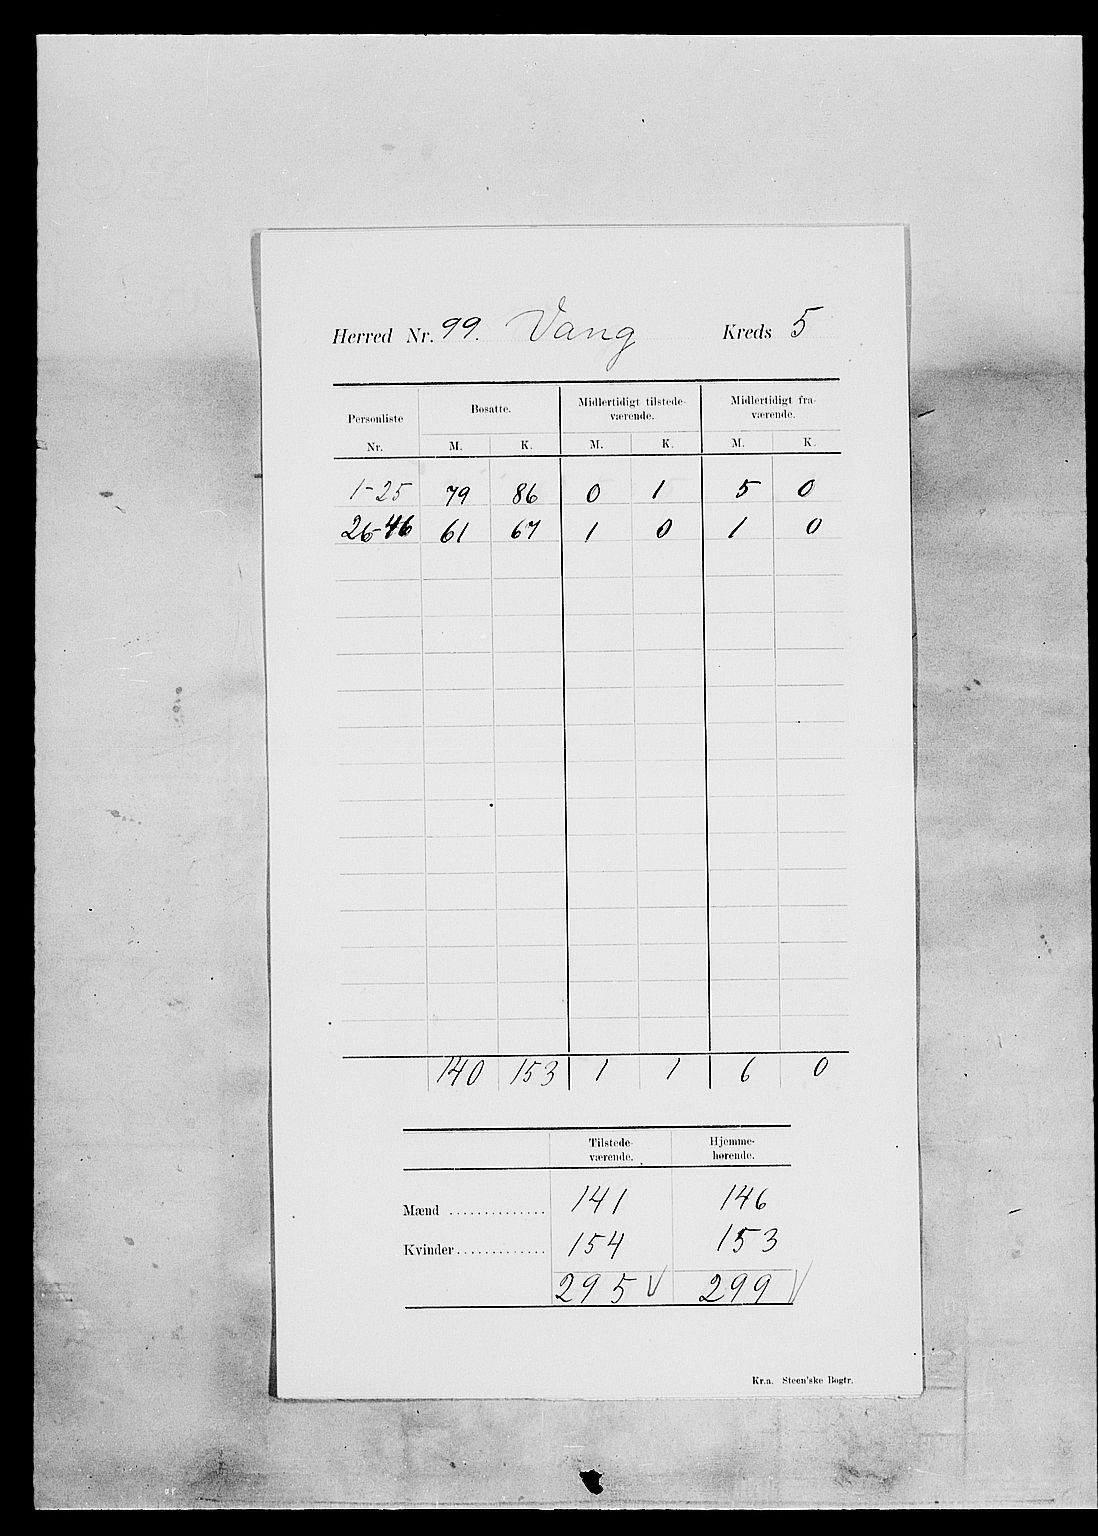 Herred Nr. 99. Vang Kreds 5
Personliste Nr. Bosatte. Midlertidigt tilstede-værende. Midlertidigt fra-værende.
M. K. M. K. M. K.
1-25 79 86 0 1 5 0
26-46 61 67 1 0 1 0
140 153 1 1 6 0
Tilstede-værende. Hjemme-hørende.
Mænd .............. 141 146
Kvinder ............. 154 153
295 V 299 V
Kr.a. Steen'ske Bogtr.